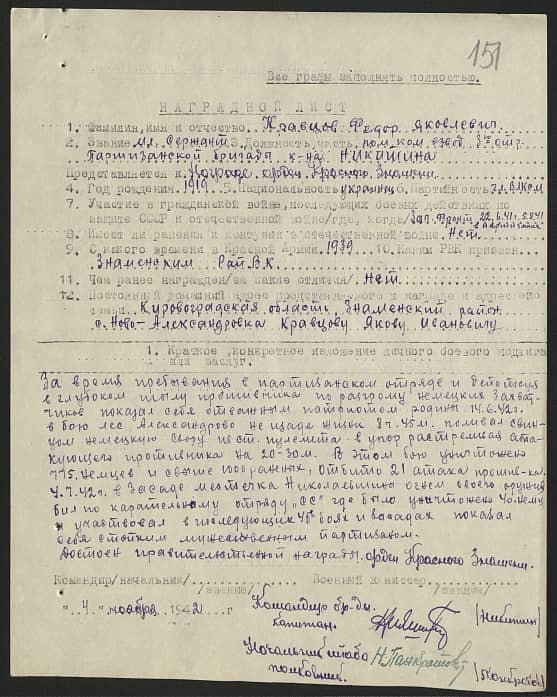 151
Все графы заполнять полностью.
НАГРАДНОЙ ЛИСТ
1. Фамилия, имя и отчество. Кравцов Федор Яковлевич
2. Звание мл. Сержант 3. Должность, часть пом. ком. взвод. 3го отр.
Партизанской бригады к-на НИКИТИНА
Представляется к Награде орден Красного Знамени.
4. Год рождения 1919 5. Национальность украинц 6. Партийность чл. ВЛКСМ
7. Участие в гражданской войне, последующих боевых действиях по
защите СССР и отечественной войне /где, когда/ Зап. Фронт 22.6.41
8. Имеет ли ранения и контузии в отечественной войне. Нет.
9. С какого времени в Красной Армии. 1939 10. Каким РВК призван
Знаменским РайВК
11. Чем ранее награжден /за какие отличия/ Нет.
12. Постоянный домашний адрес представляемого к награде и адрес его
семьи. Кировоградская область, Знаменский район
с. Ново-Александровка Кравцову Якову Ивановичу
1. Краткое, конкретное изложение личного боевого подвига
или заслуг.
За время пребывания в партизанском отряде и действуя
в глубоком тылу противника по разгрому немецких захват-
чиков показал себя отважным патриотом родины 14.6.42г.
в бою лес Александрово не щадя жизни 8ч. 45м. поливал свин-
цом немецкую свору из ст. пулемета в упор растреливая ата-
кующего противника на 20-30м. В этом бою уничтожено
775 немцев и свыше пораненых, отбито 21 атака против-ка.
4.7.42г. в засаде местечка Николаевщино огнем своего оружия
бил по карательному отряду "СС" где было уничтожено 40 немц.
и участвовал в последующих боях и засадах показал
себя стойким мужественным партизаном.
Достоен правительственной награды. орден Красного Знамени.
Командир /начальник/ Военный комиссар
/звание/ /звание/
"4." ноября 1942 г
Командир бр-ды
капитан. /Никитин/
Начальник штаба Н. Панкратов
полковник. /Панкратов/